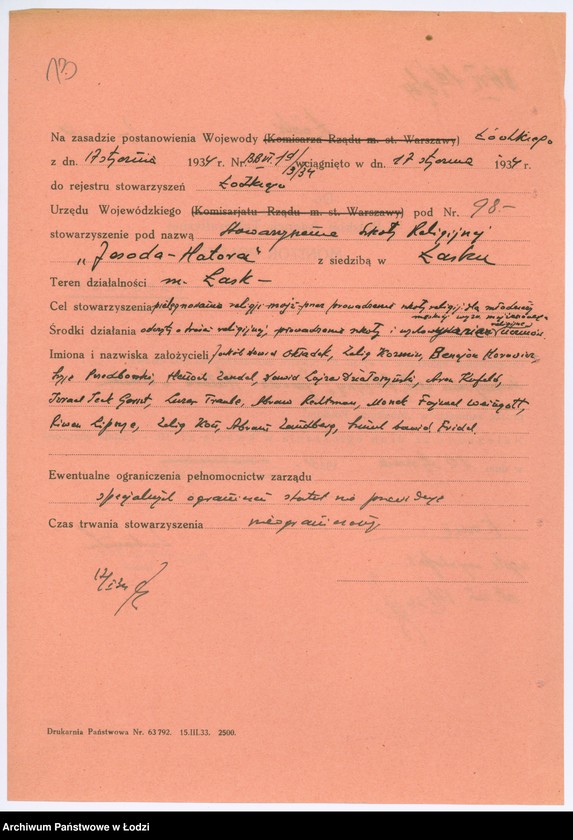 Na zasadzie postanowienia Wojewody (Komisarza Rządu m. st. Warszawy) Łódzkiego
z dn. 17 stycznia 1934 r. Nr. wciągnięto w dn. 17 stycznia 1934 r.
do rejestru stowarzyszeń Łódzkiego
Urzędu Wojewódzkiego (Komisarjatu Rządu m. st. Warszawy) pod Nr. 98-
stowarzyszenie pod nazwą Stowarzyszenie Szkoły Religijnej
„Jesoda-Hatora" z siedzibą w Łasku
Teren działalności m. Łask -
Cel stowarzyszenia pielęgnowanie religji mojż. przez prowadzenie szkoły religij. dla młodzieży
męskiej wyzn. mojżeszowego
Środki działania odczyty o treści religijnej, prowadzenie szkoły i
Imiona i nazwiska założycieli Dawid Okładek, Zelig Benejon Horowicz,
Henoch Zendel, Dawid Lajzer Działoszyński, Aron
Izrael Luzer Traube, Abram Moszek Fajwel Weingott,
Zelig Kon, Abram Zandberg, Szmul Dawid Fridel.
Ewentualne ograniczenia pełnomocnictw zarządu
specjalnych ograniczeń statut nie przewiduje
Czas trwania stowarzyszenia nieograniczony
Drukarnia Państwowa Nr. 63792. 15.III.33. 2500.
Archiwum Państwowe w Łodzi